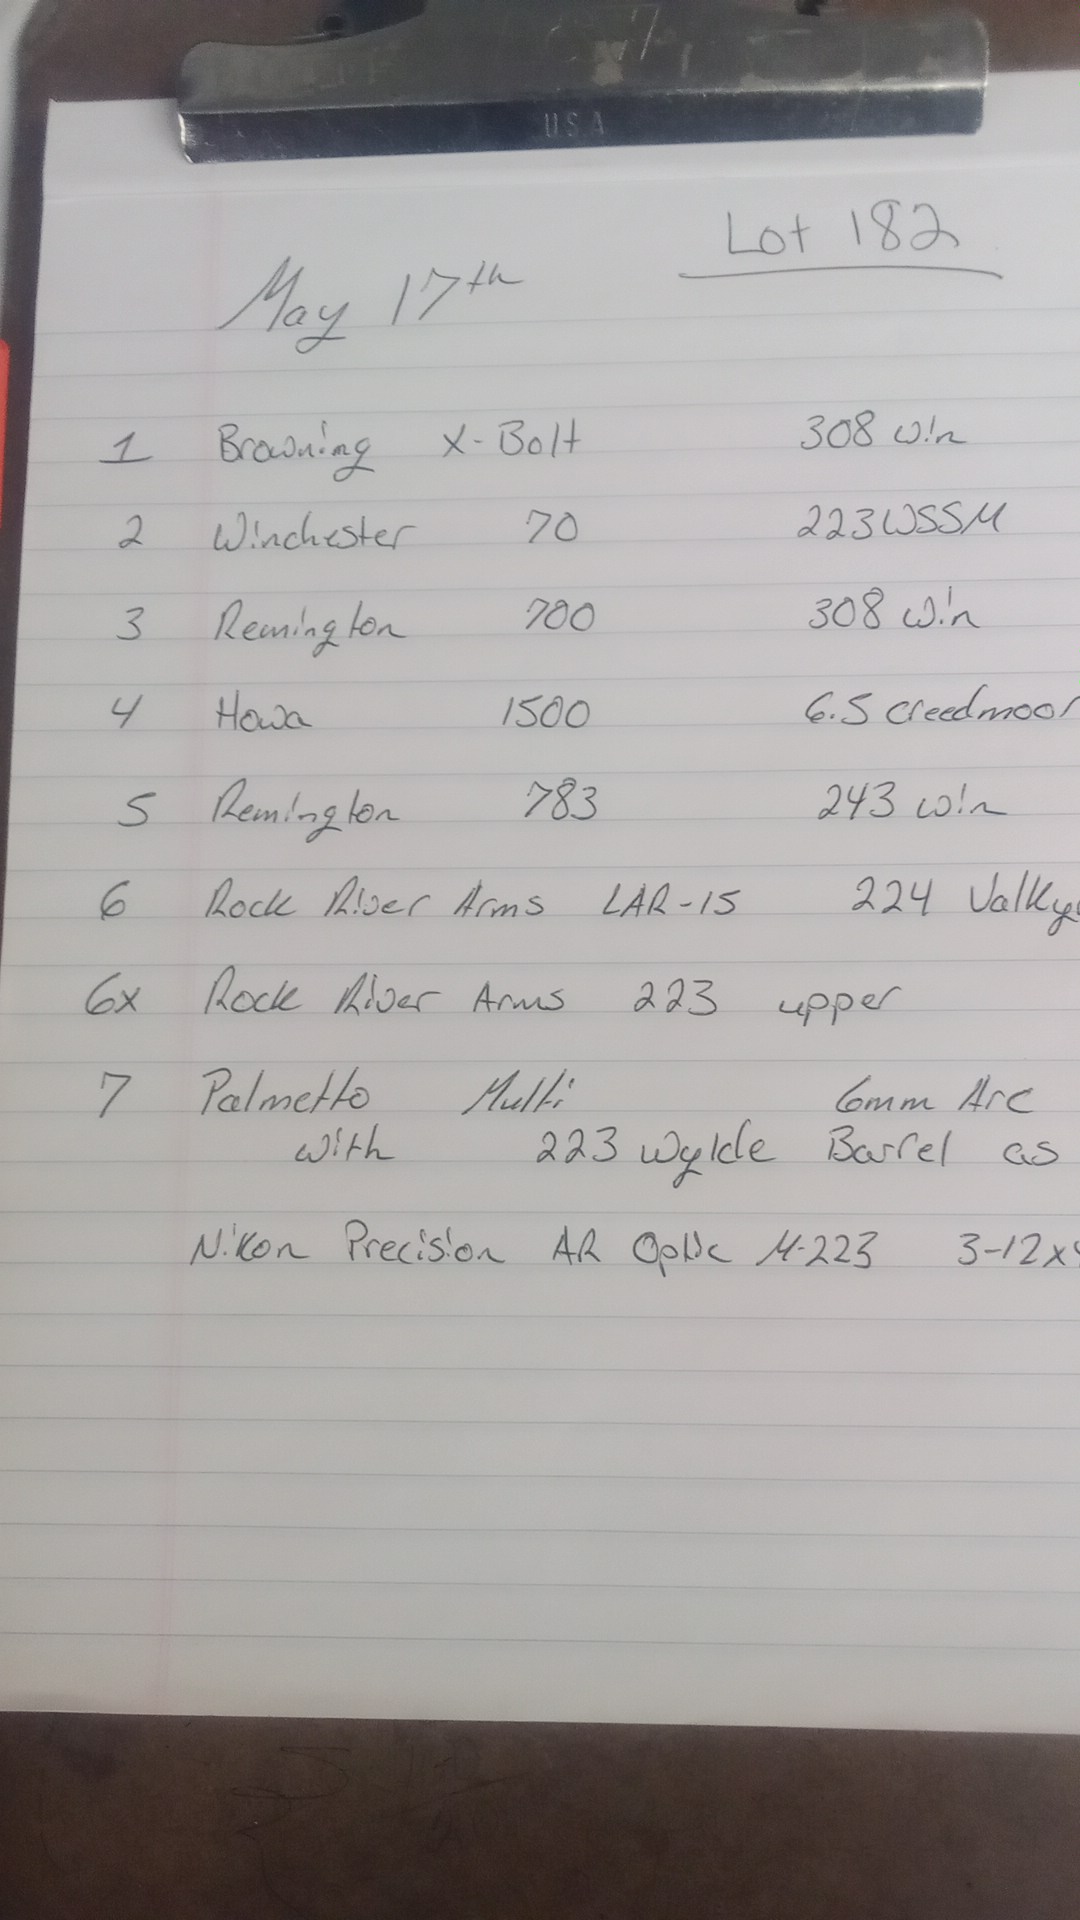 USA
Lot 182
May 17th
1 Browning X-Bolt 308 Win
2 Winchester 70 223 WSSM
3 Remington 700 308 Win
4 Howa 1500 6.5 Creedmoor
5 Remington 783 243 Win
6 Rock River Arms LAR-15 224 Valky
6x Rock River Arms 223 upper
7 Palmetto Multi 6mm Arc
with 223 Wylde Barrel as
Nikon Precision AR Optic M-223 3-12x